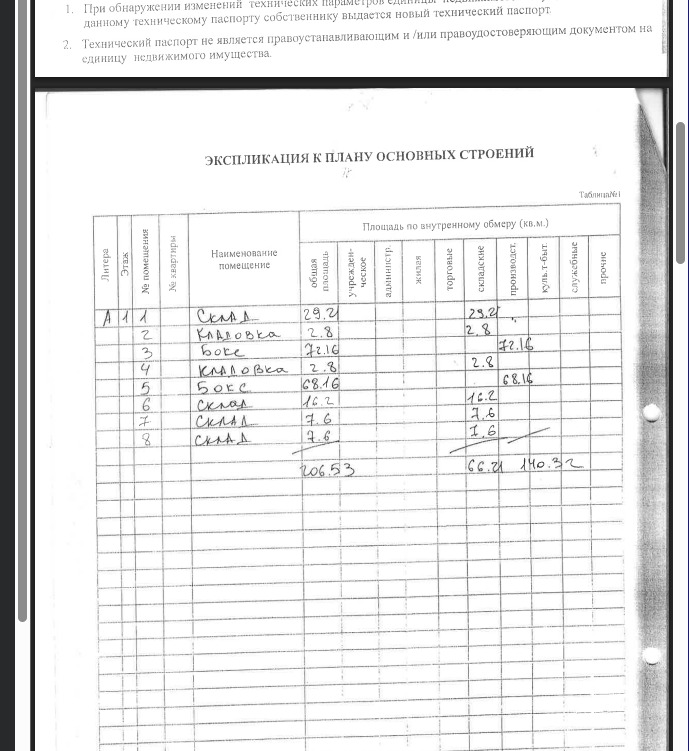 1. При обнаружении изменений технических параметров единицы
данному техническому паспорту собственнику выдается новый технический паспорт
2. Технический паспорт не является правоустанавливающим и /или правоудостоверяющим документом на
единицу недвижимого имущества.
ЭКСПЛИКАЦИЯ К ПЛАНУ ОСНОВНЫХ СТРОЕНИЙ
Таблица№1
Литера Этаж № помещения № квартиры Наименование помещение Площадь по внутренному обмеру (кв.м.)
общая площадь учрежден-ческое администр. жилая торговые складские производст. культ-быт. служебные прочие
А 1 1 Склад 29.21 29.21
2 Кладовка 2.8 2.8
3 Бокс 72.16 72.16
4 Кладовка 2.8 2.8
5 Бокс 68.16 68.16
6 Склад 16.2 16.2
7 Склад 7.6 7.6
8 Склад 7.6 7.6
206.53 66.21 140.32